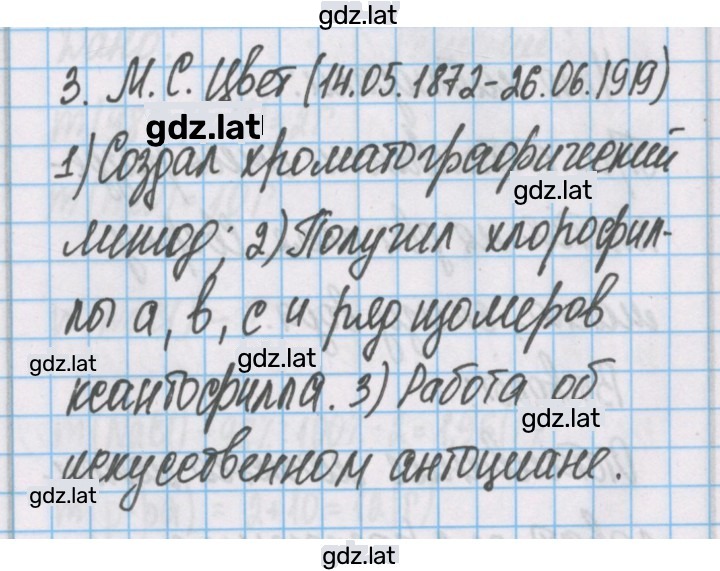 gdz.lat
3. М. С. Цвет (14.05.1872-26.06.1919)
gdz.lat
1) Создал хроматографический
gdz.lat
метод; 2) Получил хлорофил-
лы а, в, с и ряд изомеров
gdz.lat
gdz.lat
ксантофилла. 3) Работа об
gdz.lat
искусственном антоциане.
gdz.lat
gdz.lat